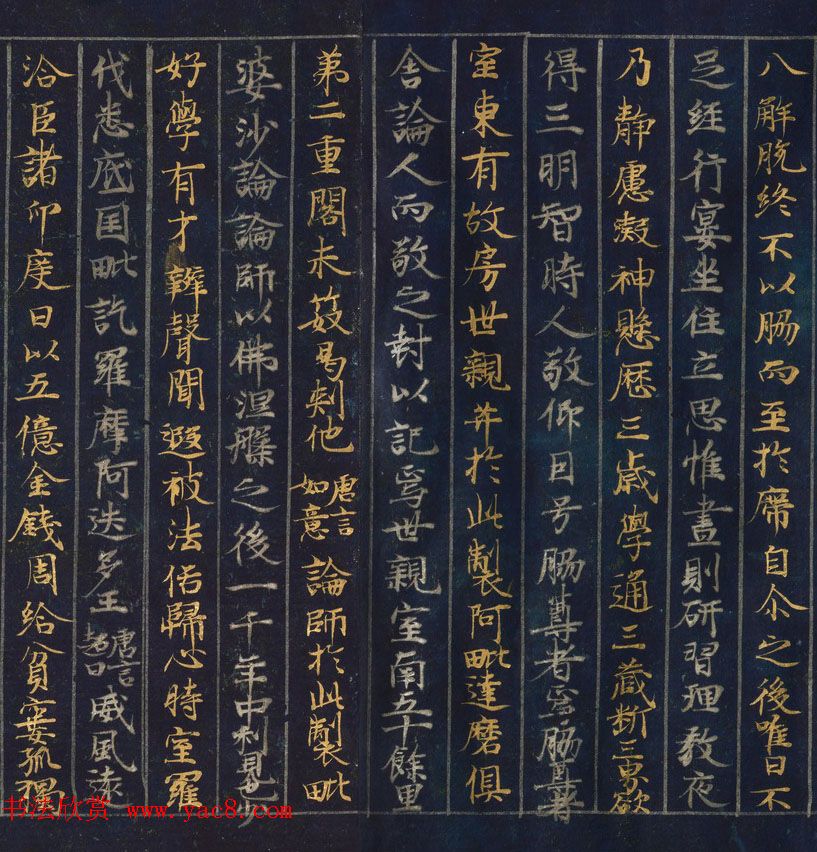 八解脫終不以脇而至於席自尒之後唯日不
足経行宴坐住立思惟晝則研習理教夜
乃靜慮凝神懸歴三歲學通三藏断三界欲
得三明智時人敬仰因号脇尊者焉脇尊者
室東有故房世親𦬇於此製阿毗達磨俱
舍論人而敬之封以記焉世親室南五十餘里
第二重閣末笯曷剌他唐言如意論師於此製毗
婆沙論論師以佛涅槃之後一千年中利見也少
好學有才辯聲聞遐被法俗歸心時室羅
伐悉底国毗訖羅摩阿迭多王唐言超日威風遠
洽臣諸印度日以五億金錢周給貧窶孤獨
书法欣赏 www.yac8.com